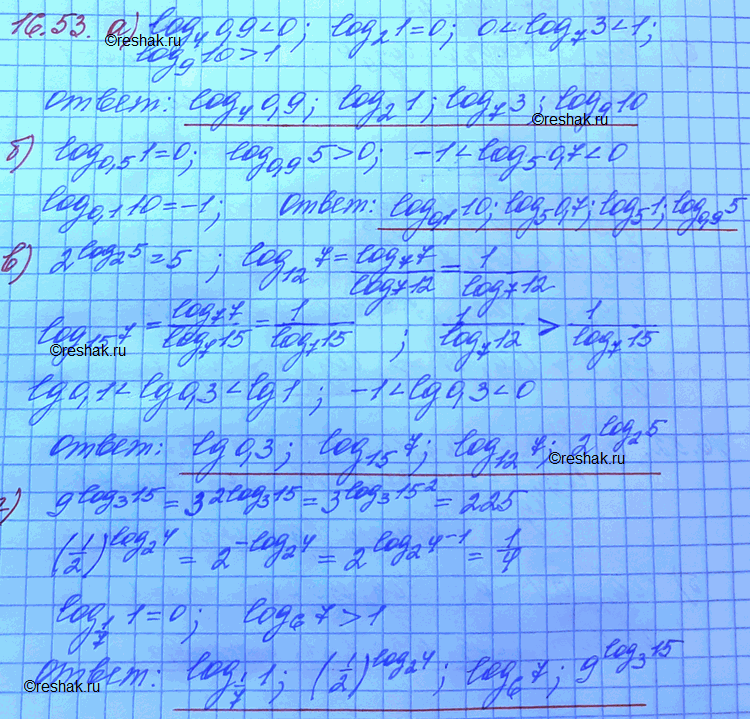 16.53. а) log₄0,9<0; log₂1=0; 0<log₇3<1;
©reshak.ru
log₉10>1
ответ: log₄0,9; log₂1; log₇3; log₉10
©reshak.ru
б) log₀,₅1=0; log₀,₉5>0; -1<log₅0,7<0
log₀,₁10=-1; ответ: log₀,₁10; log₅0,7; log₅1; log₀,₉5
в) 2^(log₂5)=5; log₁₂7=log₇7/log₇12=1/log₇12
log₁₅7=log₇7/log₇15=1/log₇15; 1/log₇12>1/log₇15
©reshak.ru
lg0,1<lg0,3<lg1; -1<lg0,3<0
ответ: lg0,3; log₁₅7; log₁₂7; 2^(log₂5)
©reshak.ru
г) 9^(log₃15)=3^(2log₃15)=3^(log₃15²)=225
(1/2)^(log₂4)=2^(-log₂4)=2^(log₂4⁻¹)=1/4
log_(1/7)1=0; log₆7>1
ответ: log_(1/7)1; (1/2)^(log₂4); log₆7; 9^(log₃15)
©reshak.ru